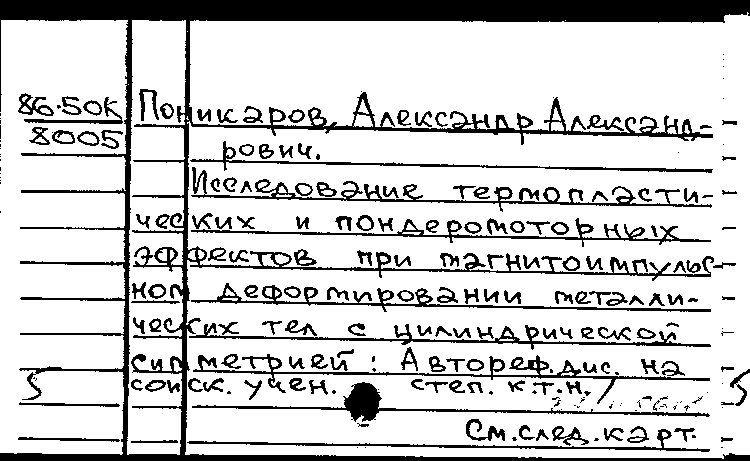 86-50К Поникаров, Александр Александ-
8005
рович.
Исследование термопласти-
ческих и пондеромоторных
эффектов при магнитоимпульс-
ном деформировании металли-
ческих тел с цилиндрической
симметрией: Автореф. дис. на
5 соиск. учен. степ. к.т.н./
См. след. карт.